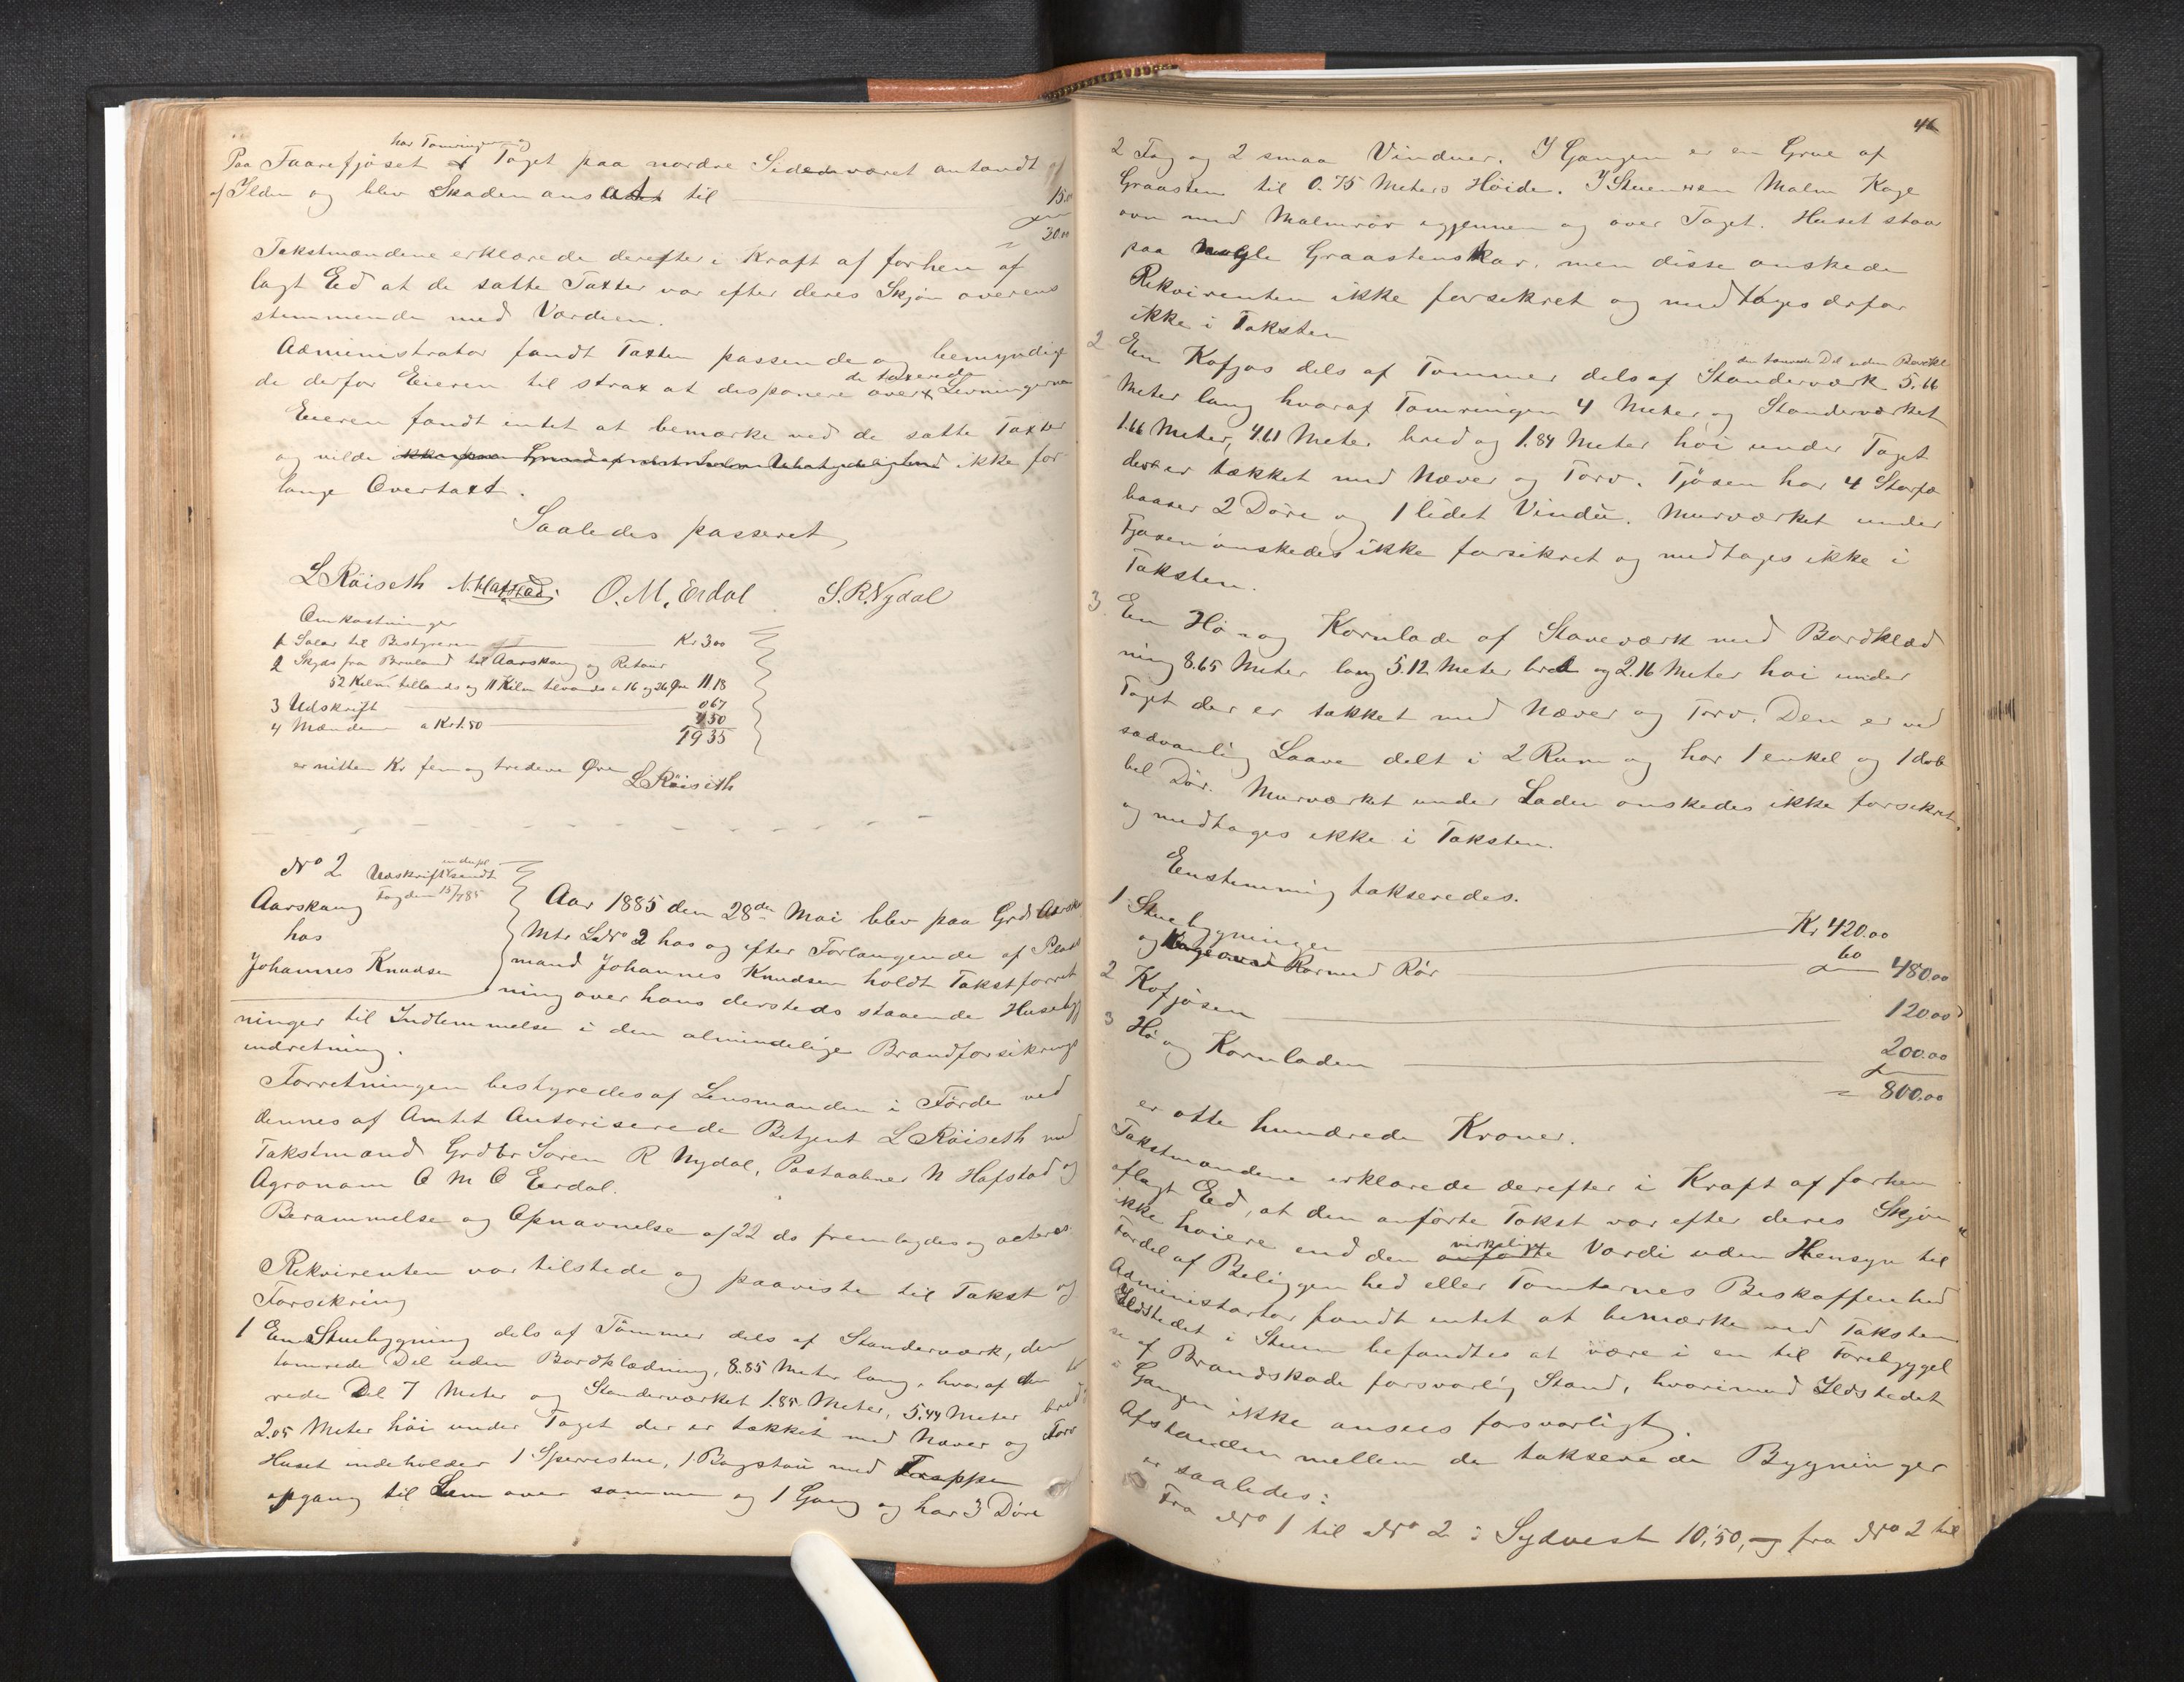 har Tømringen og
Paa Faarefjøset Taget paa nordre Side været antændt af
af Ilden og blev Skaden ansat til 15.00
= 30.00
Takstmændene erklærede derefter i Kraft af forhen af
lagt Ed at de satte Taxter var efter deres Skjøn overens
stemmende med Værdien.
Administrator fandt Taxten passende og bemyndige
de derfor Eieren til strax at disponere over de taxerede Levninger
Eieren fandt intet at bemærke ved de satte Taxter
og vilde ikke for
lange Overtaxt.
Saaledes passeret,
L Röiseth N. Hafstad. O. M. Erdal S. R. Nydal
Omkostninger
1 Salær til Bestyreren Kr 3 00
2 Skyds fra Bruland til Aarskaug og Retour
52 Kilm tillands og 11 Kilm tilvands a 16 og 26 Øre 11 18
3 Udskrift 0 67
4 Mændene a Kr 1.50 4 50
19 35
er nitten Kr fem og tredeve Øre L Röiseth
No 2 Udskrift sendt
Fogden 15/7 85
Aarskaug
hos
Johannes Knudsen
Aar 1885 den 28de Mai blev paa Grd Aarska
Mtr LNo 2 hos og efter Forlangende af Plads
mand Johannes Knudsen holdt Takstforret
ning over hans dersteds staaende Husebyg
ninger til Indlemmelse i den almindelige Brandforsikrings
indretning.
Forretningen bestyredes af Lensmanden i Förde ved
dennes af Amtet Autoriserede Betjent L Röiseth med
Takstmænd Grdbr Søren R Nydal, Postaabner N Hafstad og
Agronom O M O Eerdal.
Berammelse og Opnævnelse af 22 ds fremlagdes og acteres.
Rekvirenten var tilstede og paaviste til Takst og
Forsikring
1 En Stuebygning dels af Tömmer dels af Standerværk, den
tømrede Del uden Bordklædning, 8.85 Meter lang, hvoraf den tø
rede Del 7 Meter og Standerværket 1.85 Meter, 5.44 Meter bred
2.05 Meter høi under Taget der er tækket med Næver og Torv
Huset indeholder 1 Sperrestue, 1 Bagstöu med Trappe
opgang til Lem over samme og 1 Gang og har 3 Döre
46
2 Fag og 2 smaa Vinduer. I Gangen er en Grue af
Graasten til 0.75 Meters Höide. I Stuen en Malm Koge
ovn med Malmrör igjennem og over Taget. Huset staar
paa nogle Graastenskar, men disse ønskede
Rekvirenten ikke forsikret og medtages derfor
ikke i Taksten
den tømrede Del uden Bordkl
2 En Kofjøs dels af Tømmer dels af Standerværk 5.66
Meter lang hvoraf Tømringen 4 Meter og Standerværket
1.66 Meter, 4.61 Meter bred og 1.84 Meter høi under Taget
der er tækket med Næver og Torv. Fjösen har 4 Storfæ
baaser 2 Döre og 1 lidet Vindu. Murværket under
Fjøsen ønskedes ikke forsikret og medtages ikke i
Taksten.
3. En Hø- og Kornlade af Staveværk med Bordklæd
ning 8.65 Meter lang 5.12 Meter bred og 2.16 Meter høi under
Taget der er tækket med Næver og Torv. Den er ved
sædvanlig Laave delt i 2 Rum og har 1 enkel og 1 dob
bel Dör. Murværket under Laden ønskedes ikke forsikret
og medtages ikke i Taksten.
Eenstemmig takseredes.
1 Stuebygningen Kr 420.00
og Kogeovn med Rör 60 480.00
2 Kofjösen 120.00
3 Hø og Kornladen 200.00
= 800.00
er otte hundrede Kroner.
Takstmændene erklærede derefter i Kraft af forhen
aflagt Ed, at den anførte Takst var efter deres Skjøn
ikke høiere end den virkelige Værdi uden Hensyn til
Fordel af Beliggenhed eller Tomternes Beskaffenhed
Administrator fandt intet at bemærke ved Taksten
Ildstedet i Stuen befandtes at være i en til Forebyggel
se af Brandskade forsvarlig Stand, hvorimod Ildstedet
i Gangen ikke ansees forsvarligt.
Afstanden mellem de takserede Bygninger
er saaledes:
Fra No 1 til No 2 i Sydvest 10,50, fra No 2 til